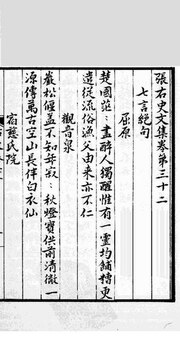 張右史文集卷第三十二
七言絕句
屈原
楚國茫茫盡醉人獨醒惟有一靈均餔糟更
遣從流俗漁父由來亦不仁
觀音泉
巖松偃蓋不知年秋燈寶供前清微一
源傳萬古空山長伴白衣仙
宿龔氏院